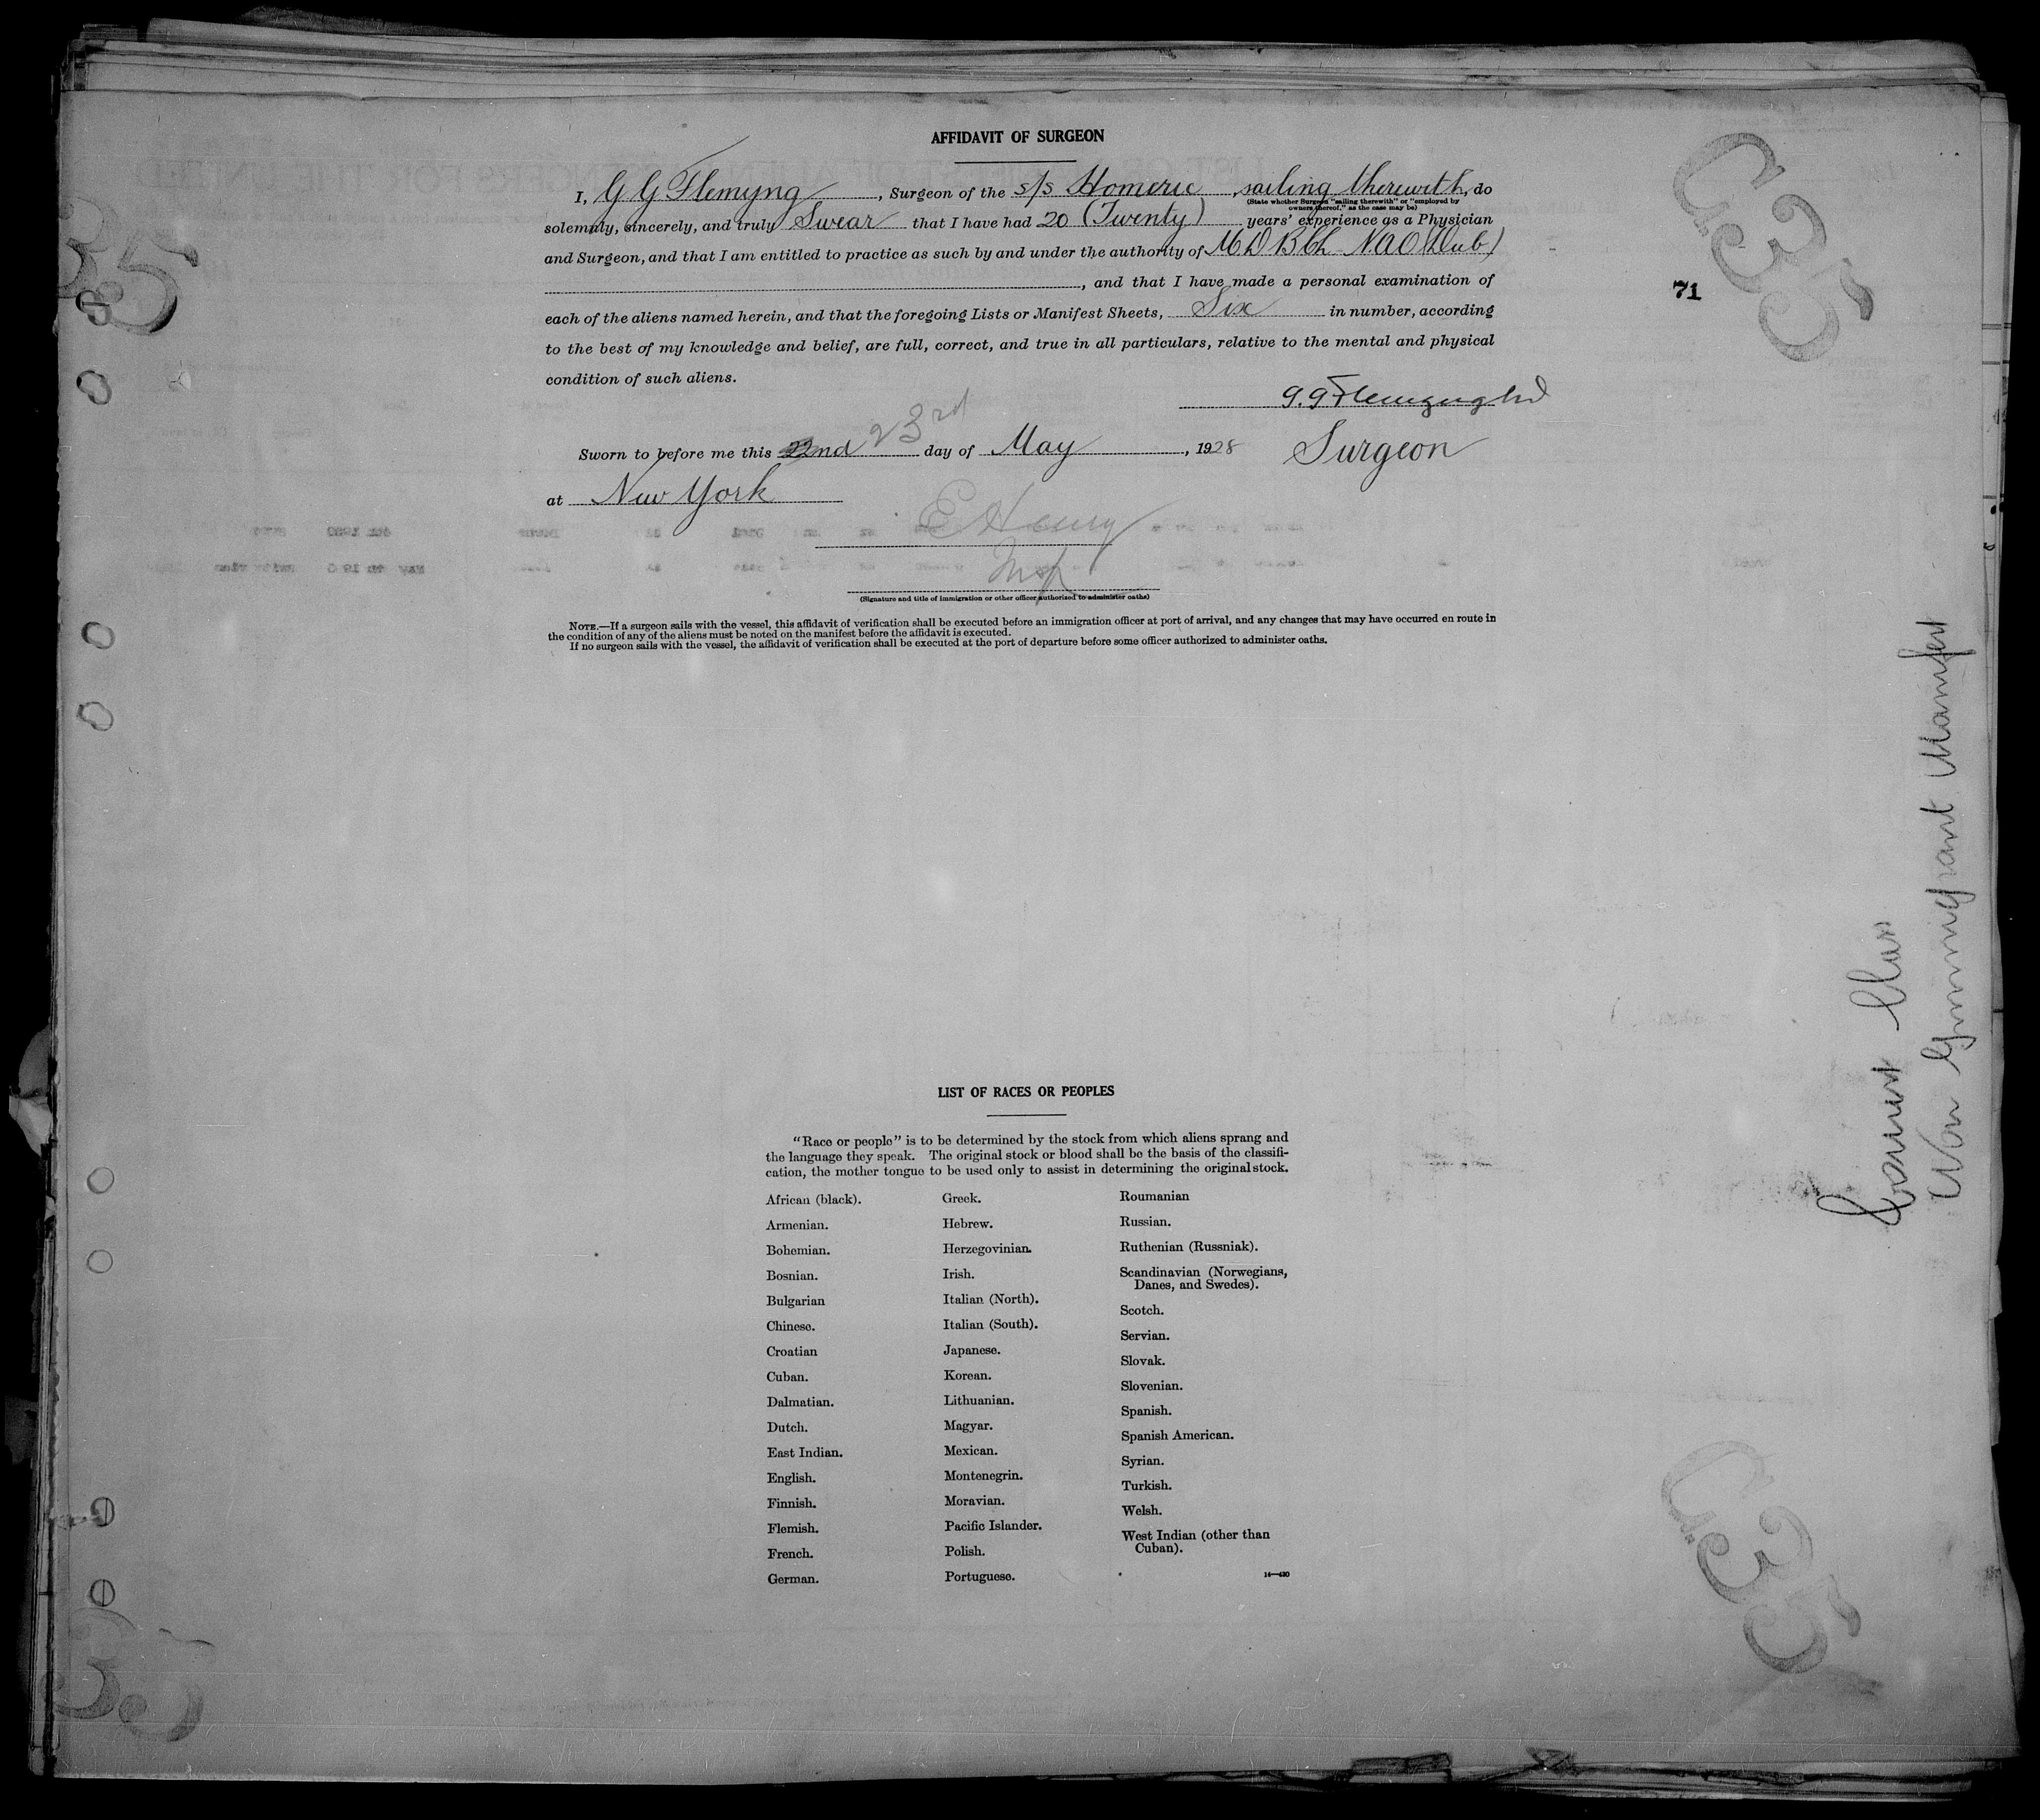 AFFIDAVIT OF SURGEON
I, G G Flemyng, Surgeon of the s/s Homeric, sailing therewith, do
(State whether Surgeon "sailing therewith" or "employed by
owners thereof," as the case may be)
solemnly, sincerely, and truly Swear that I have had 20 (Twenty) years' experience as a Physician
and Surgeon, and that I am entitled to practice as such by and under the authority of M D B Ch NAO (Dub)
, and that I have made a personal examination of
each of the aliens named herein, and that the foregoing Lists or Manifest Sheets, Six in number, according
to the best of my knowledge and belief, are full, correct, and true in all particulars, relative to the mental and physical
condition of such aliens.
G. G Flemyng
Sworn to before me this 22nd 23rd day of May, 1928 Surgeon
at New York
E Henry
Insp
(Signature and title of immigration or other officer authorized to administer oaths)
NOTE.—If a surgeon sails with the vessel, this affidavit of verification shall be executed before an immigration officer at port of arrival, and any changes that may have occurred en route in
the condition of any of the aliens must be noted on the manifest before the affidavit is executed.
If no surgeon sails with the vessel, the affidavit of verification shall be executed at the port of departure before some officer authorized to administer oaths.
71
C35
35
Tourist Class
Non Immigrant Manifest
LIST OF RACES OR PEOPLES
"Race or people" is to be determined by the stock from which aliens sprang and
the language they speak. The original stock or blood shall be the basis of the classifi-
cation, the mother tongue to be used only to assist in determining the original stock.
African (black).
Armenian.
Bohemian.
Bosnian.
Bulgarian
Chinese.
Croatian
Cuban.
Dalmatian.
Dutch.
East Indian.
English.
Finnish.
Flemish.
French.
German.
Greek.
Hebrew.
Herzegovinian.
Irish.
Italian (North).
Italian (South).
Japanese.
Korean.
Lithuanian.
Magyar.
Mexican.
Montenegrin.
Moravian.
Pacific Islander.
Polish.
Portuguese.
Roumanian
Russian.
Ruthenian (Russniak).
Scandinavian (Norwegians,
Danes, and Swedes).
Scotch.
Servian.
Slovak.
Slovenian.
Spanish.
Spanish American.
Syrian.
Turkish.
Welsh.
West Indian (other than
Cuban).
14—430
C35
35